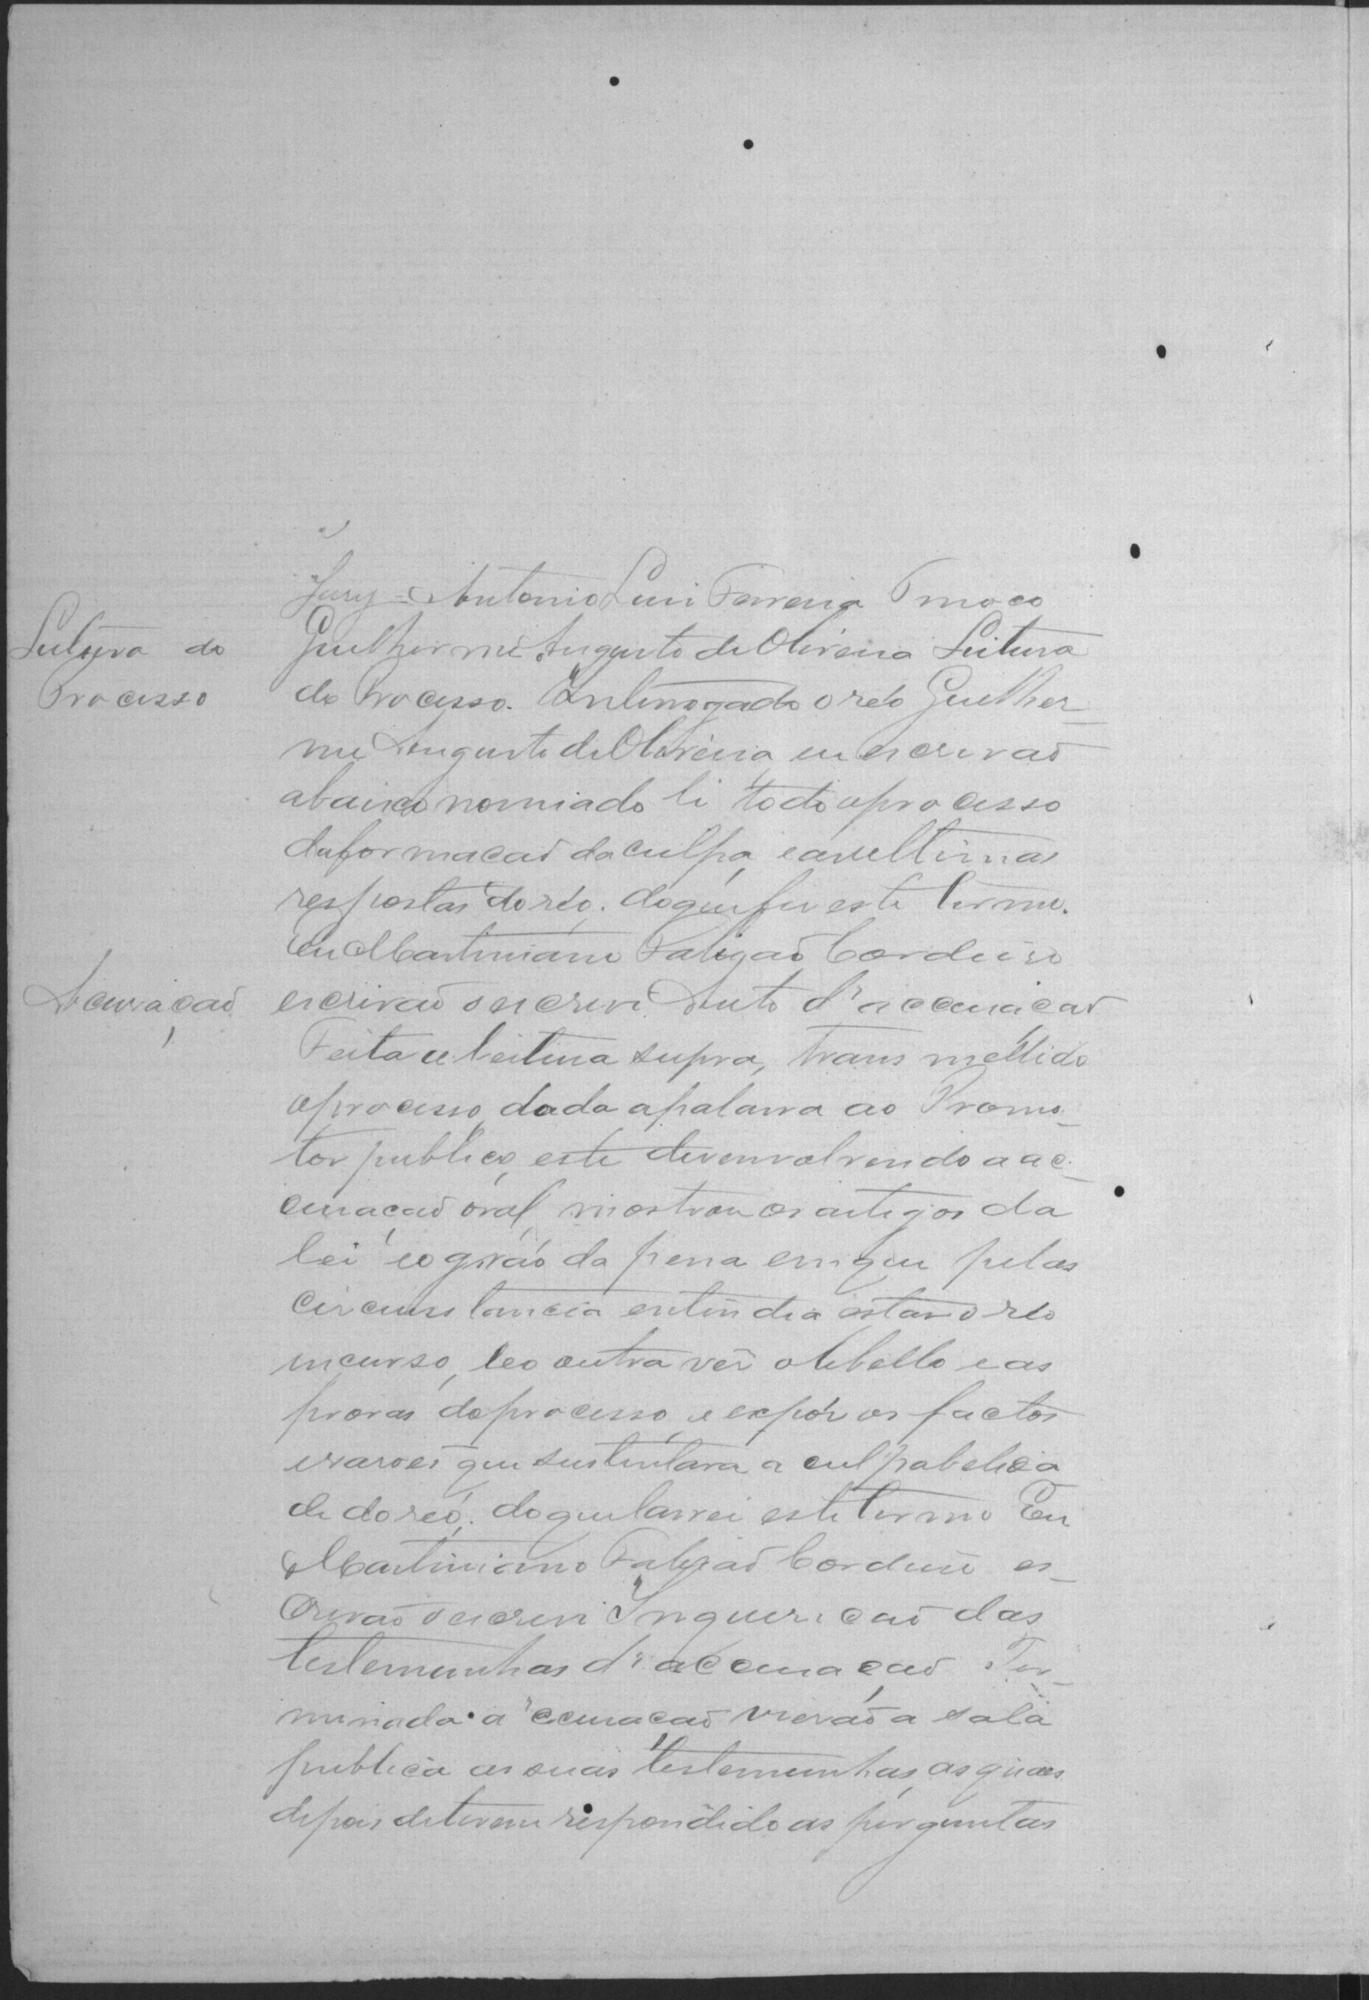 Jury = Antonio Luis Ferreira Tinoco
Leitura do
Processo
Guilherme Augusto de Oliveira Leitura
do Processo. Interrogado o réo Guilher-
me Augusto de Oliveira, eu escrivaõ
abaixo nomiado li todo oprocesso
daformacaõ daculpa, easultimas
respostas doréo. doque fis este termo.
Eu Martiniano Falcaõ Cordeiro
Acusaçaõ
escrivaõ oescrevi Auto d'accusacaõ
Feita a leitura supra, transmettido
oprocesso, dada apalavra ao Promo-
tor publico, este desenvolvendo a ac-
cusaçaõ oral, mostrou os artigos da
lei, eográo da pena emque pelas
circumstancia entendia estar o réo
incurso, leo outra vez olibello e as
provas doprocesso, e expôz os factos
erasoes que sustentava a culpabelida
de doréo. doque lavrei este termo Eu
Martiniano Falcaõ Cordeiro es-
crivaõ oescrevi Inquericaõ das
testemunhas d'accusaçaõ Ter-
minada a accusacaõ vieraõ a sala
publica as suas testemunhas, as quaes
depois deterem respondido as perguntas